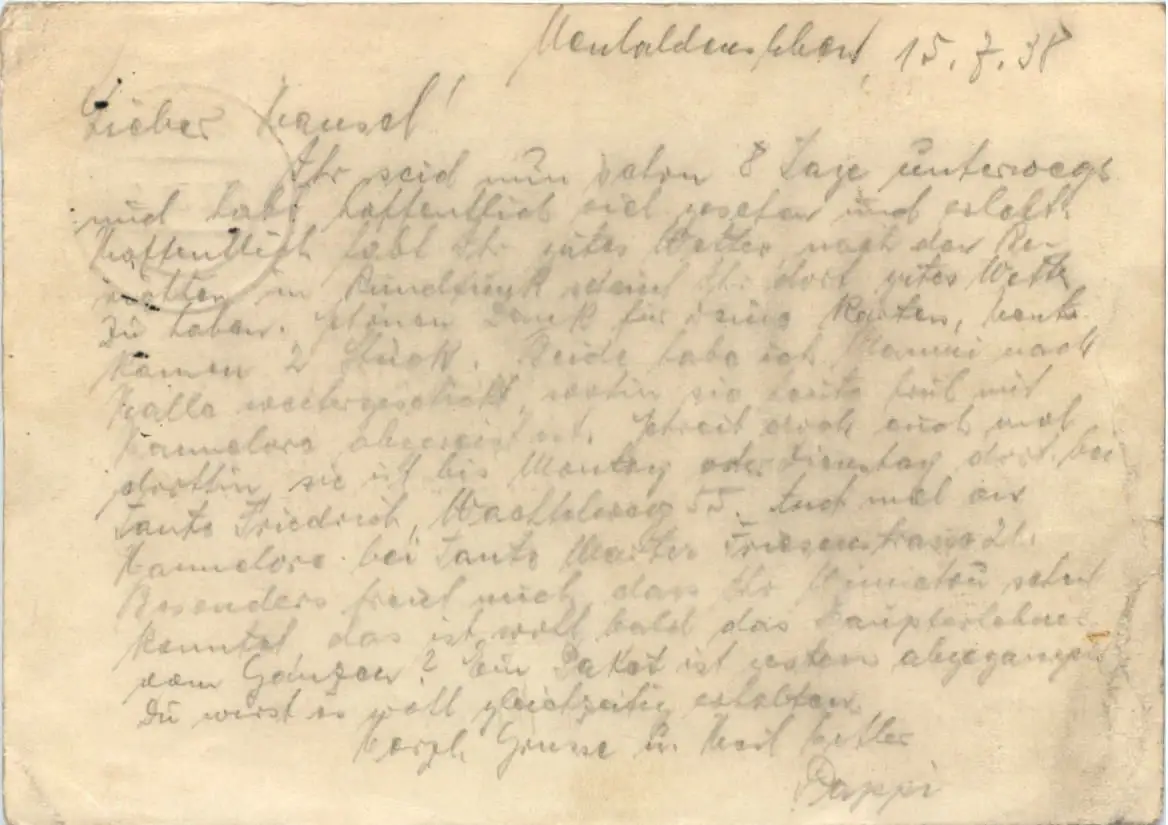 Neuhaldensleben, 15.7.38
Lieber Hansel!
Ihr seid nun schon 8 Tage unterwegs
und habt hoffentlich viel gesehen und erlebt.
Hoffentlich habt Ihr gutes Wetter, nach den Be-
richten im Rundfunk scheint Ihr dort gutes Wetter
zu haben. Schönen Dank für Deine Karten, heute
kamen 2 Stück. Beide habe ich Mammi nach
Halle weitergeschickt, wohin sie heute früh mit
Hannelore abgereist ist. Schreib doch auch mal
dorthin, sie ist bis Montag oder Dienstag dort bei
Tante Friedrich, 55. Auch mal an
Hannelore bei Tante Friesenstrasse 21.
Besonders freut mich, dass Ihr sehen
konntet, das ist wohl bald das
vom Ganzen? Ein Paket ist gestern abgegangen
Du wirst es wohl gleichzeitig erhalten.
Herzl. Grüsse u. Heil Hitler
Pappi